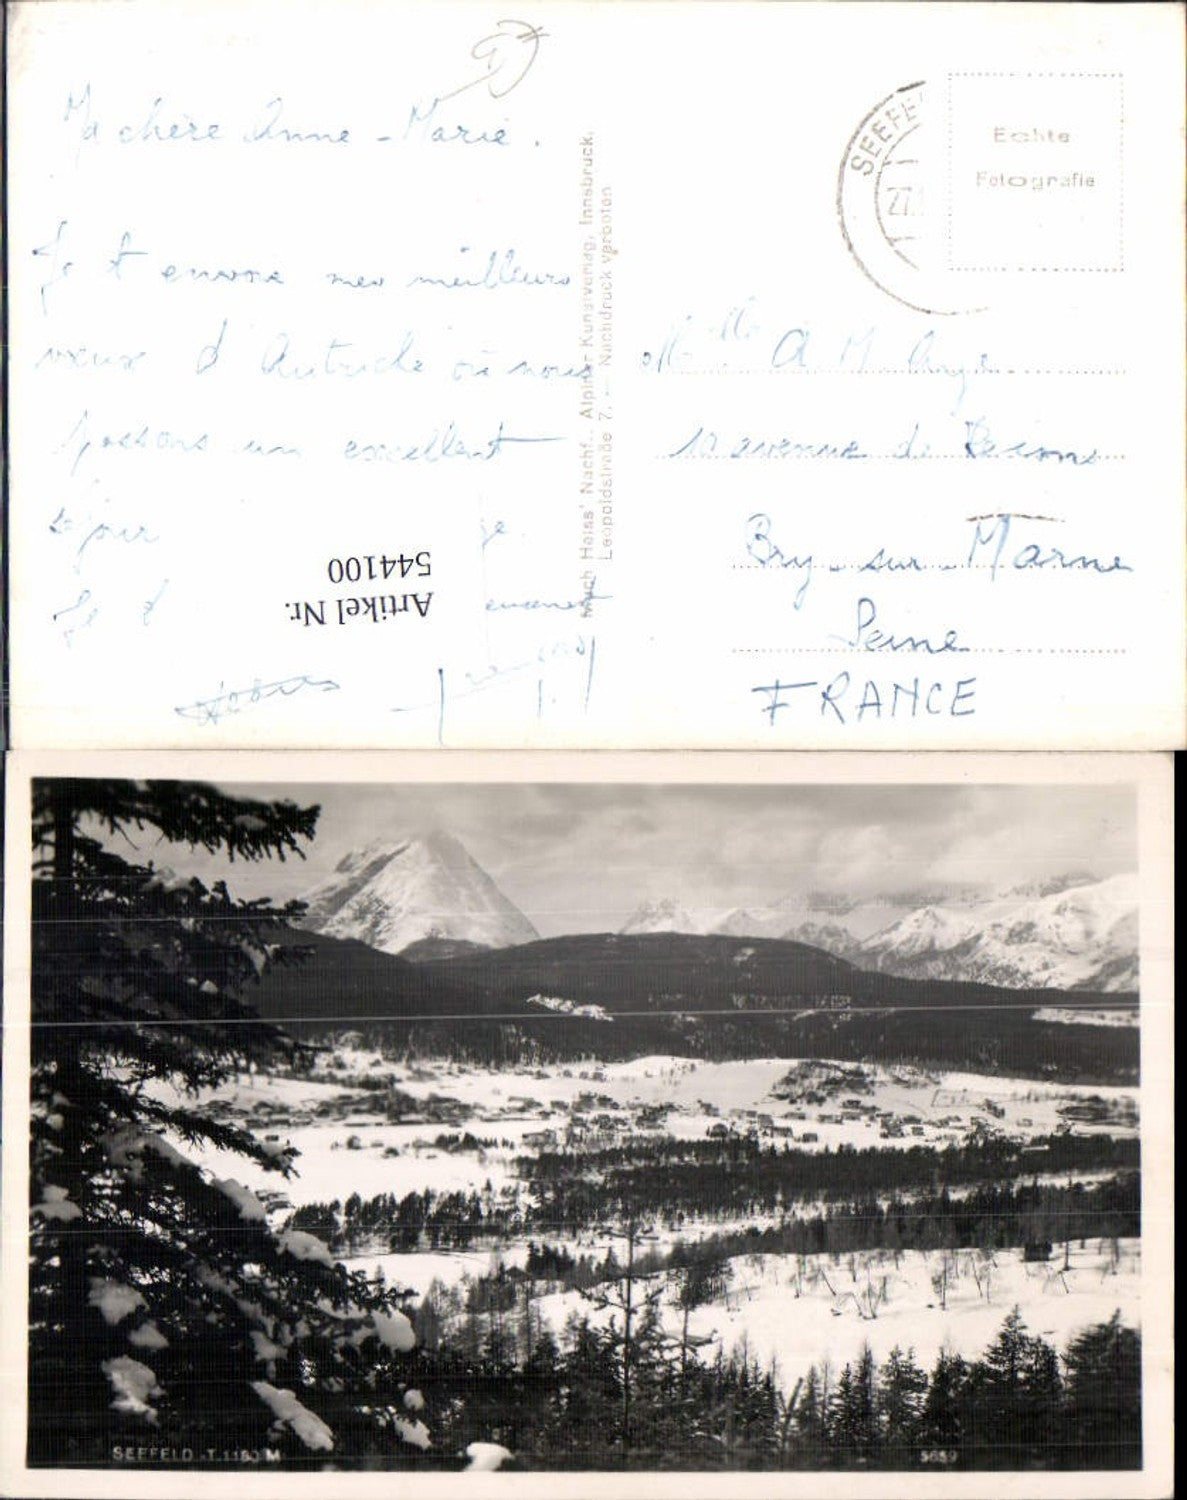 Ma chère Anne-Marie.
Je t'envoie mes meilleurs
vœux d'Autriche où nous
passons un excellent
séjour
Je t
Artikel Nr.
544100
Much Heiss' Nachf., Alpiner Kunstverlag, Innsbruck,
Leopoldstraße 7. — Nachdruck verboten
SEEFEL
27.
Echte
Fotografie
Melle A. M. Ange
10 avenue de Reims
Bry-sur-Marne
Seine
FRANCE
SEEFELD -T. 1180 M
5659